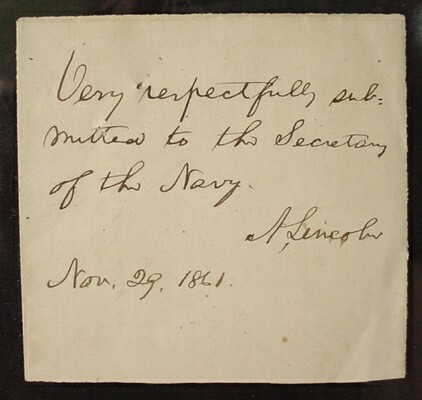 Very respectfully sub=
mitted to the Secretary
of the Navy.
A. Lincoln
Nov. 29. 1861.